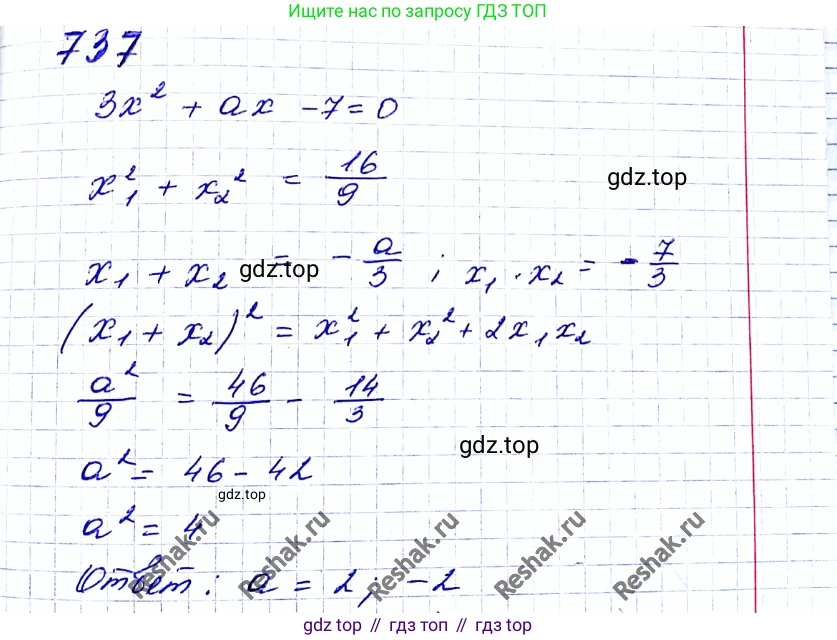 Ищите нас по запросу ГДЗ ТОП
737
3x² + ax - 7 = 0
x₁² + x₂² = 16/9
gdz.top
x₁ + x₂ = - a/3 ; x₁ · x₂ = - 7/3
gdz.top
(x₁ + x₂)² = x₁² + x₂² + 2x₁x₂
a²/9 = 46/9 - 14/3
gdz.top
a² = 46 - 42
gdz.top
a² = 4
Reshak.ru Reshak.ru Reshak.ru Reshak.ru Reshak.ru
Ответ: a = 2; -2
gdz top // гдз топ // gdz top // гдз топ